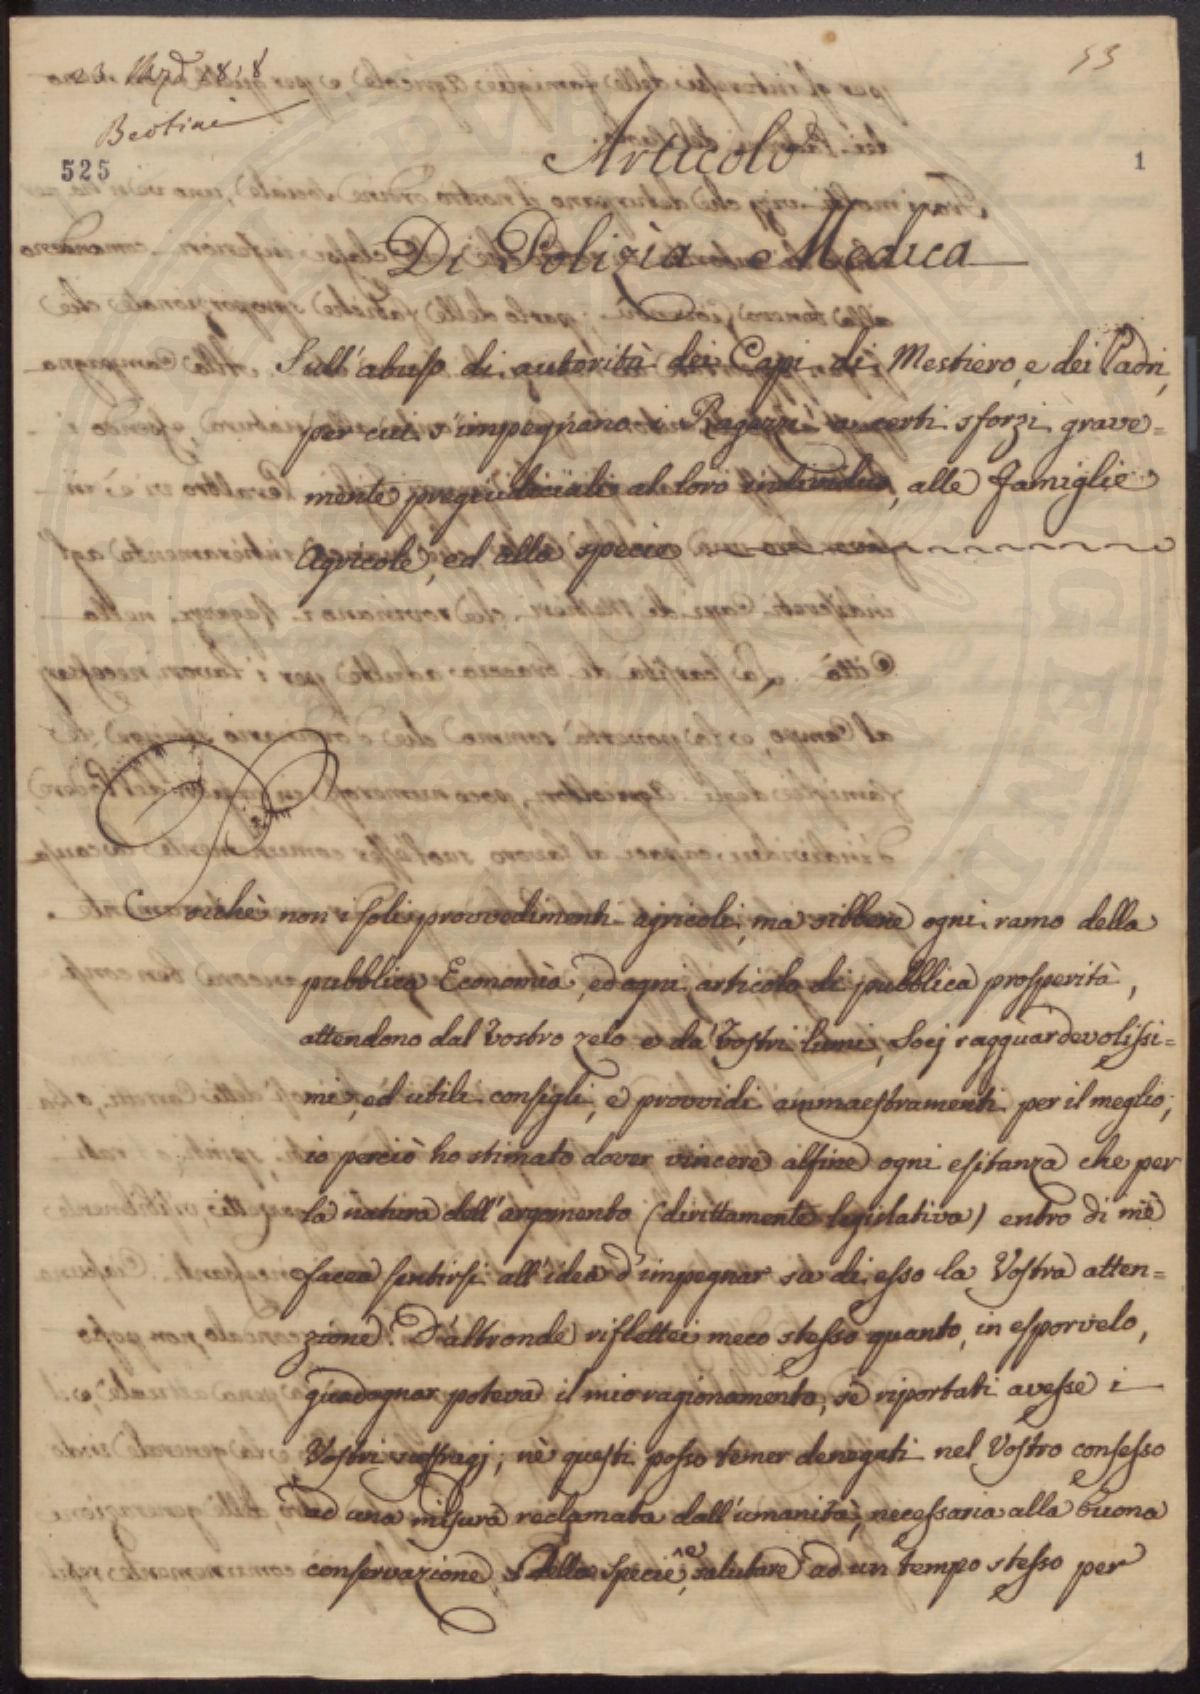 23. Marzo 1818
53
Bertini
525
1
Articolo
Di Polizìa Medica
Sull'abuso di autorità dei Capi di Mestiero, e dei Padri,
per cui s'impegnano i Ragazzi a certi sforzi grave=
mente pregiudiciali al loro individuo, alle famiglie
Agricole, ed alla specie
Poichè non i soli provvedimenti agricoli, ma sibbene ogni ramo della
pubblica Economìa, ed ogni articolo di pubblica prosperità,
attendono dal Vostro zelo e da' Vostri lumi, Socj ragguardevolissi=
mi, ed utili consigli, e provvidi ammaestramenti per il meglio;
io perciò ho stimato dover vincere alfine ogni esitanza che per
la natura dell'argomento (dirittamente legislativo) entro di mè
facea sentirsi all'idea d'impegnar su di esso la Vostra atten=
zione. D'altronde riflettei meco stesso quanto, in esporvelo,
guadagnar poteva il mio ragionamento, se riportati avesse i
Vostri suffragj; nè questi posso temer denegati nel Vostro consesso
ad una misura reclamata dall'umanità, necessaria alla buona
conservazione della specie, e salutare ad un tempo stesso per